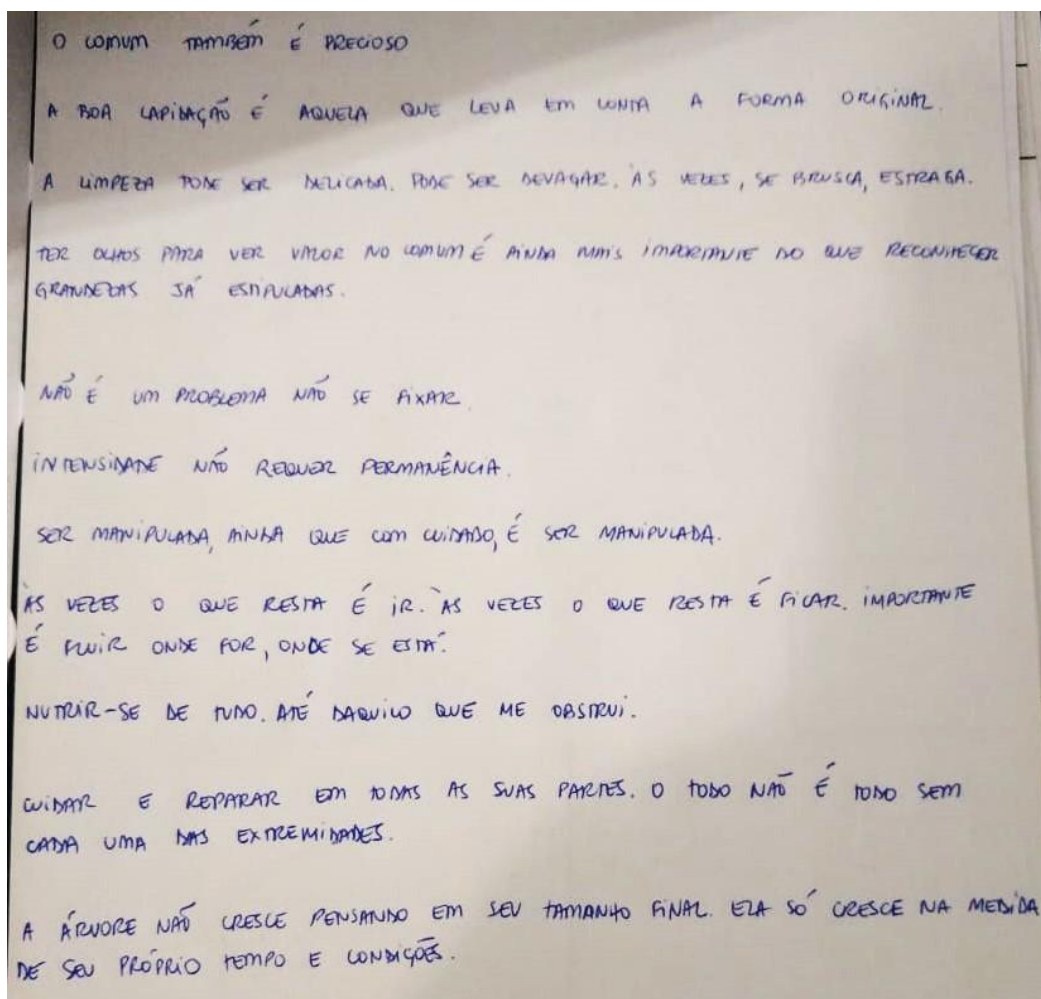 O COMUM TAMBÉM É PRECIOSO
A BOA LAPIDAÇÃO É AQUELA QUE LEVA EM CONTA A FORMA ORIGINAL.
A LIMPEZA PODE SER DELICADA. PODE SER DEVAGAR. ÀS VEZES, SE BRUSCA, ESTRAGA.
TER OLHOS PARA VER VALOR NO COMUM É AINDA MAIS IMPORTANTE DO QUE RECONHECER
GRANDEZAS JÁ ESTIPULADAS.
NÃO É UM PROBLEMA NÃO SE FIXAR.
INTENSIDADE NÃO REQUER PERMANÊNCIA.
SER MANIPULADA, AINDA QUE COM CUIDADO, É SER MANIPULADA.
ÀS VEZES O QUE RESTA É IR. ÀS VEZES O QUE RESTA É FICAR. IMPORTANTE
É FLUIR ONDE FOR, ONDE SE ESTÁ.
NUTRIR-SE DE TUDO. ATÉ DAQUILO QUE ME OBSTRUI.
CUIDAR E REPARAR EM TODAS AS SUAS PARTES. O TODO NÃO É TODO SEM
CADA UMA DAS EXTREMIDADES.
A ÁRVORE NÃO CRESCE PENSANDO EM SEU TAMANHO FINAL. ELA SÓ CRESCE NA MEDIDA
DE SEU PRÓPRIO TEMPO E CONDIÇÕES.